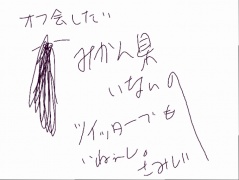 オフ会したい
みかん県
いないの
ツイッターでも
いねーし。
さみしい